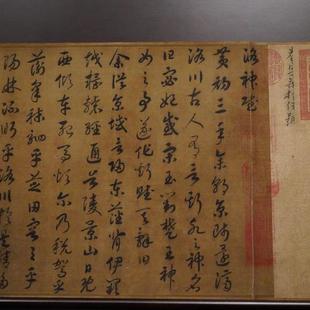 洛神賦
黃初三年余朝京師還濟
洛川古人有言斯水之神名
曰宓妃感宋玉對楚王神
女之事遂作斯賦其辭曰
余從京域言歸東藩背伊闕
越轘轅經通谷陵景山日既
西傾車殆馬煩爾乃稅駕乎
蘅皋秣駟乎芝田容與乎
陽林流眄乎洛川於是精移